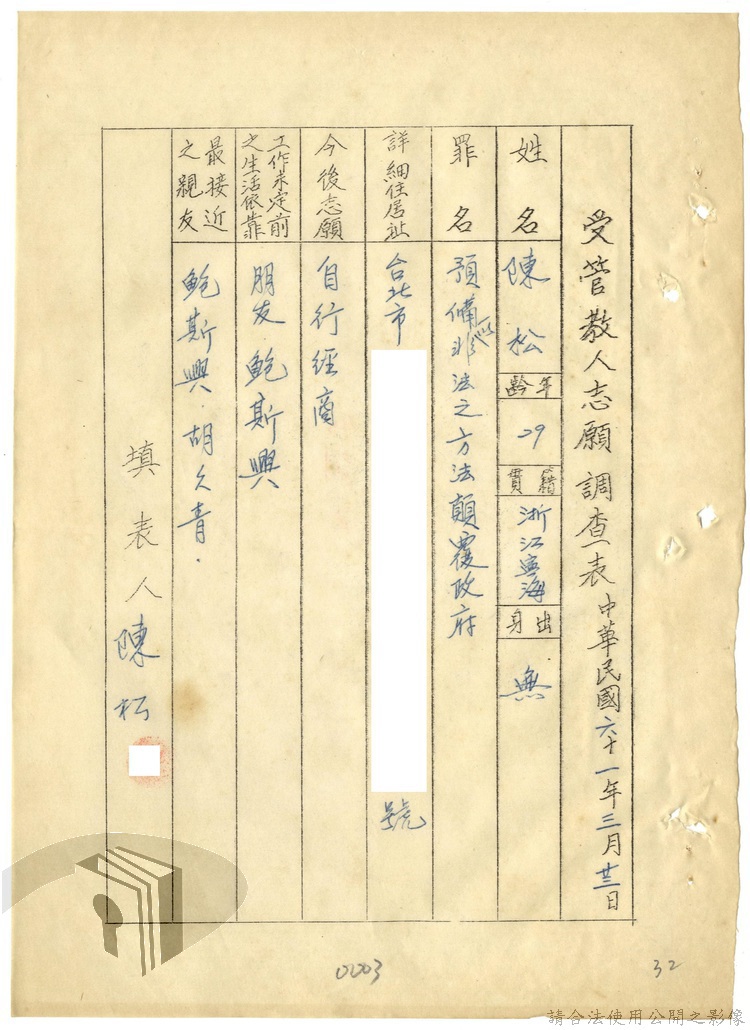 受管教人志願調查表 中華民國六十一年三月廿三日
姓名 陳松 年齡 29 籍貫 浙江寧海 出身 無
罪名 預備以非法之方法顛覆政府
詳細住居址 台北市 號
今後志願 自行經商
工作未定前之生活依靠 朋友.鮑斯興
最接近之親友 鮑斯興.胡久青.
填表人 陳松
0003
32
請合法使用公開之影像